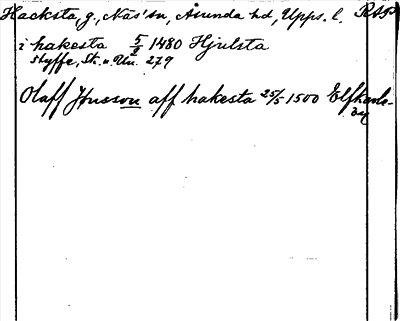 Hacksta, g., Näs' sn, Åsunda hd, Upps. l. RAp
i hakesta 5/2 1480 Hjulsta
Styffe, Sk. u. Un. 279
Olaff Jensson aff hakesta 25/5 1500 Elfkarle-
by